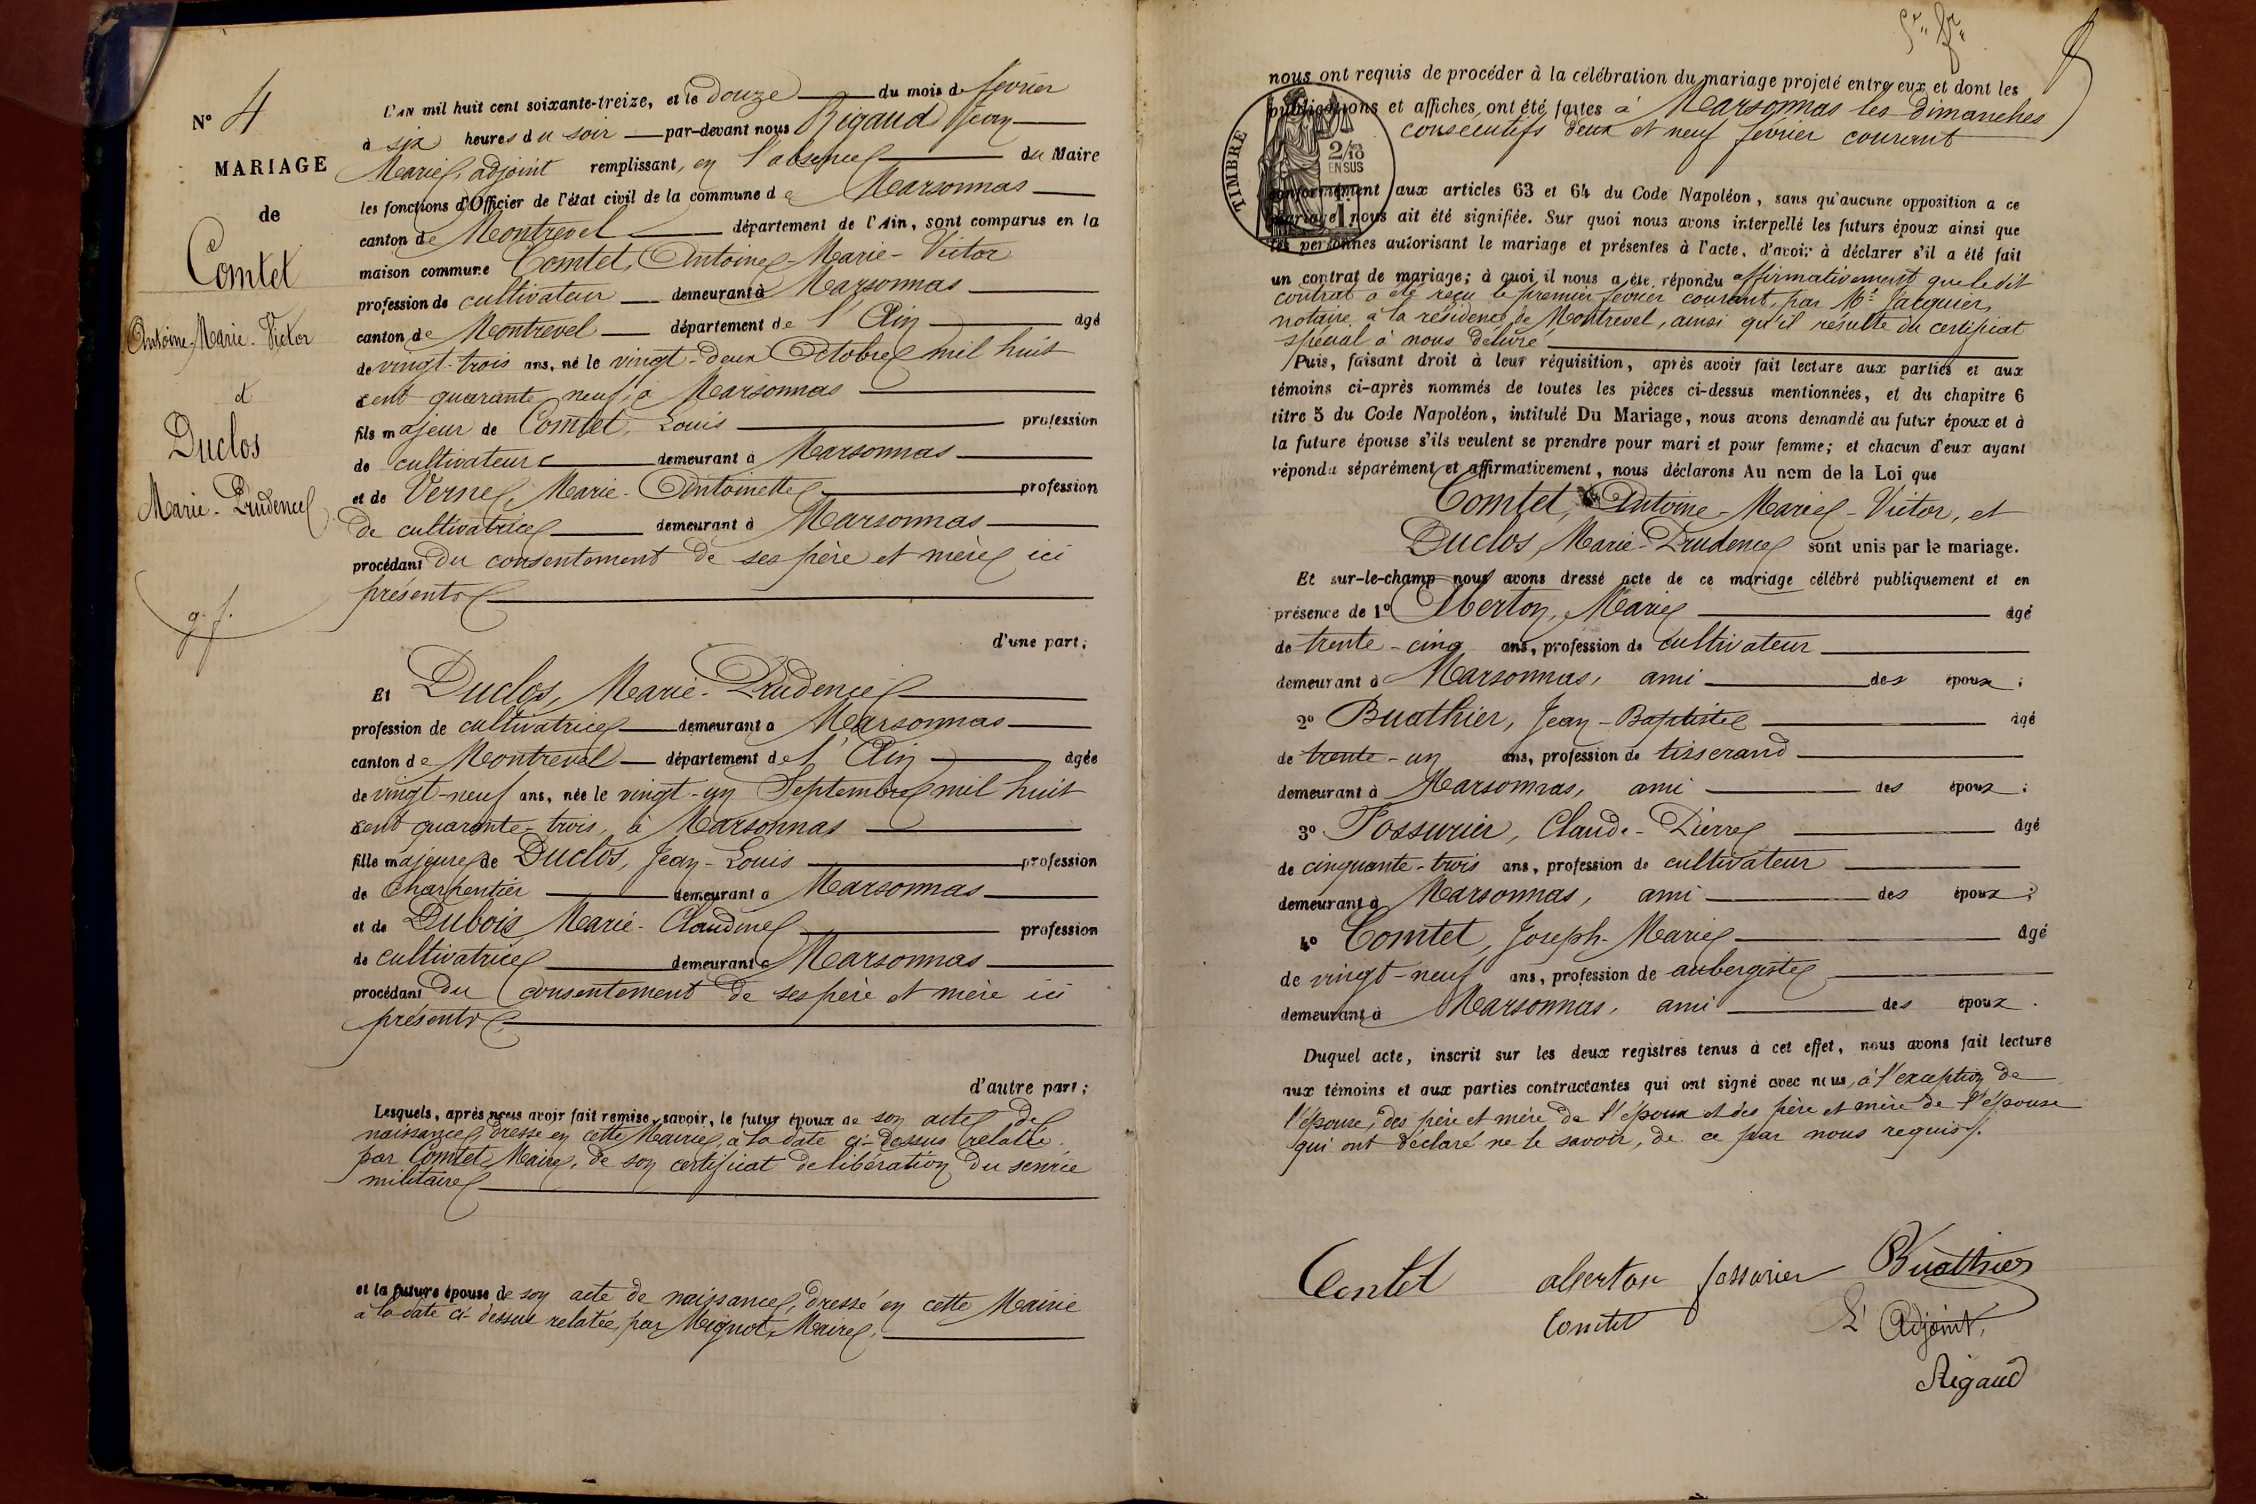 N° 4
MARIAGE
de
Comtet
Antoine-Marie-Victor
et
Duclos
Marie-Prudence
g. f.
L'AN mil huit cent soixante-treize, et le douze du mois de février
à six heures du soir par-devant nous Rigaud Jean
Marie, adjoint remplissant, en l'absence du Maire
les fonctions d'Officier de l'état civil de la commune de Marsonnas
canton de Montrevel département de l'Ain, sont comparus en la
maison commune Comtet, Antoine-Marie-Victor
profession de cultivateur demeurant à Marsonnas
canton de Montrevel département de l'Ain âgé
de vingt-trois ans, né le vingt-deux Octobre mil huit
cent quarante neuf, à Marsonnas
fils majeur de Comtet, Louis profession
de cultivateur demeurant à Marsonnas
et de Verne, Marie-Antoinette profession
de cultivatrice demeurant à Marsonnas
procédant du consentement de ses père et mère ici
présents
d'une part;
Et Duclos, Marie-Prudence
profession de cultivatrice demeurant à Marsonnas
canton de Montrevel département de l'Ain âgée
de vingt-neuf ans, née le vingt-un Septembre mil huit
cent quarante-trois, à Marsonnas
fille majeure de Duclos, Jean-Louis profession
de charpentier demeurant à Marsonnas
et de Dubois Marie-Claudine profession
de cultivatrice demeurant à Marsonnas
procédant du consentement de ses père et mère ici
présents
d'autre part;
Lesquels, après nous avoir fait remise, savoir, le futur époux de son acte de
naissance, dressé en cette Mairie, à la date ci-dessus relatée.
par Comtet, Maire, de son certificat de libération du service
militaire
et la future épouse de son acte de naissance, dressé en cette Mairie
à la date ci-dessus relatée, par Mignot, Maire.
nous ont requis de procéder à la célébration du mariage projeté entre eux et dont les
publications et affiches ont été faites à Marsonnas les dimanches
consécutifs deux et neuf février courant
TIMBRE
2/10
EN SUS
conformément aux articles 63 et 64 du Code Napoléon, sans qu'aucune opposition a ce
mariage nous ait été signifiée. Sur quoi nous avons interpellé les futurs époux ainsi que
les personnes autorisant le mariage et présentes à l'acte, d'avoir à déclarer s'il a été fait
un contrat de mariage; à quoi il nous a été répondu affirmativement que le dit
contrat a été reçu le premier février courant, par Me Jacquier,
notaire à la résidence de Montrevel, ainsi qu'il résulte du certificat
spécial à nous délivré
Puis, faisant droit à leur réquisition, après avoir fait lecture aux parties et aux
témoins ci-après nommés de toutes les pièces ci-dessus mentionnées, et du chapitre 6
titre 5 du Code Napoléon, intitulé Du Mariage, nous avons demandé au futur époux et à
la future épouse s'ils veulent se prendre pour mari et pour femme; et chacun d'eux ayant
répondu séparément et affirmativement, nous déclarons Au nom de la Loi que
Comtet, Antoine-Marie-Victor, et
Duclos, Marie-Prudence sont unis par le mariage.
Et sur-le-champ nous avons dressé acte de ce mariage célébré publiquement et en
présence de 1° Alberton, Marie âgé
de trente-cinq ans, profession de cultivateur
demeurant à Marsonnas, ami des époux;
2° Buathier, Jean-Baptiste âgé
de trente-un ans, profession de tisserand
demeurant à Marsonnas, ami des époux;
3° Fossurier, Claude-Pierre âgé
de cinquante-trois ans, profession de cultivateur
demeurant à Marsonnas, ami des époux;
4° Comtet, Joseph-Marie âgé
de vingt-neuf ans, profession de aubergiste
demeurant à Marsonnas, ami des époux.
Duquel acte, inscrit sur les deux registres tenus à cet effet, nous avons fait lecture
aux témoins et aux parties contractantes qui ont signé avec nous, à l'exception de
l'épouse, des père et mère de l'époux et des père et mère de l'épouse
qui ont déclaré ne le savoir, de ce par nous requis.
Comtet alberton fossurier Buathier
Comtet L'Adjoint,
Rigaud